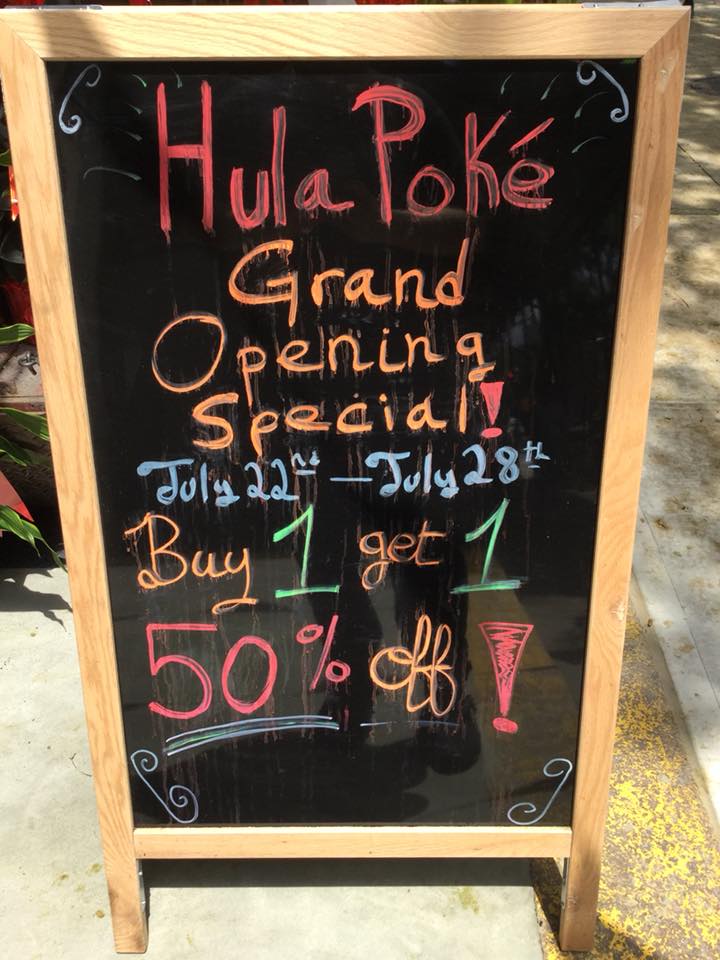 Hula Poké
Grand
Opening
Special!
July 22nd – July 28th
Buy 1 get 1
50% off!